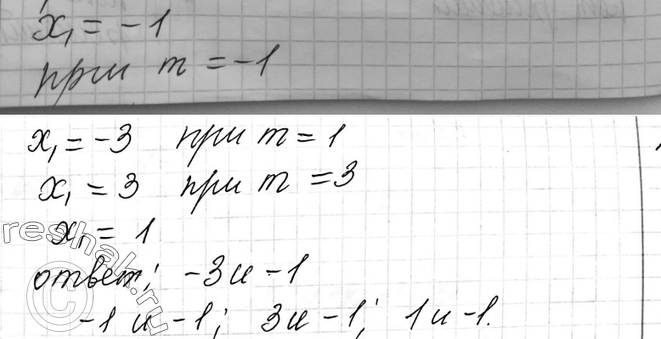 x₁ = -1
при m = -1
x₁ = -3 при m = 1
x₁ = 3 при m = 3
x₁ = 1
ответ: -3 и -1
-1 и -1; 3 и -1; 1 и -1.
reshak.ru